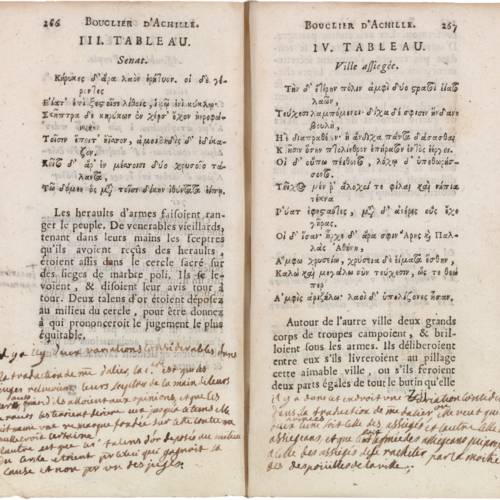 266 BOUCLIER D'ACHILLE.
III. TABLEAU.
Senat.
Κήρυκες δ' ἄρα λαὸν ἐρήτυον. οἱ δὲ γέ-
ροντες
Εἵατ' ἐπὶ ξεστοῖσι λίθοις, ἱερῷ ἐνὶ κύκλῳ.
Σκῆπτρα δὲ κηρύκων ἐν χέρσ' ἔχον ἠεροφώ-
Τοῖσιν ἔπειτ' ἤϊσσον, ἀμοιβηδὶς δ' ἐδίκα-
ζον.
Κεῖτο δ' ἄρ' ἐν μέσσοισι δύο χρυσοῖο τά-
λαντα,
Τῷ δόμεν ὃς μετὰ τοῖσι δίκην ἰθύντατα εἴπῃ.
Les heraults d'armes faisoient ran-
ger le peuple. De venerables vieillards,
tenant dans leurs mains les sceptres
qu'ils avoient reçus des heraults,
étoient assis dans le cercle sacré sur
des sieges de marbre poli. Ils se le-
voient, & disoient leur avis tour à
tour. Deux talens d'or étoient déposez
au milieu du cercle, pour être donnez
à qui prononceroit le jugement le plus
équitable.
il y a deux variations considerables dans
la traduction de me dacier, la 1re est que les
juges leurs sceptres de la main
ils alloient aux opinions, et que les
talens d'or deposés au milieu
du cercle étoient pour celui qui gagnoit sa
cause et non pour un des juges.
BOUCLIER D'ACHILLE. 267
IV. TABLEAU.
Ville assiegée.
Τὴν δ' ἑτέρην πόλιν ἀμφὶ δύο στρατοὶ εἵατο
λαῶν,
Τεύχεσι λαμπόμενοι· δίχα δέ σφισιν ἥνδανε
βουλὴ,
Ἠὲ διαπραθέειν ἢ ἄνδιχα πάντα δάσασθαι
Κτῆσιν ὅσην πτολίεθρον ἐπήρατον ἐντὸς ἔεργεν.
Οἱ δ' οὔπω πείθοντο, λόχῳ δ' ὑπεθωρήσ-
σοντο.
Τεῖχος μέν ῥ' ἄλοχοί τε φίλαι καὶ νήπια
τέκνα
Ῥύατ' ἐφεσταότες, μετὰ δ' ἀνέρες οὓς ἔχε
γῆρας.
Οἱ δ' ἴσαν· ἦρχε δ' ἄρα σφιν Ἄρης καὶ Παλ-
λὰς Ἀθήνη,
Ἄμφω χρυσείω, χρύσεια δὲ εἵματα ἕσθην,
Καλὼ καὶ μεγάλω σὺν τεύχεσιν, ὥς τε θεώ
περ
Ἀμφὶς ἀριζήλω· λαοὶ δ' ὑπολίζονες ἦσαν.
Autour de l'autre ville deux grands
corps de troupes campoient, & bril-
loient sous les armes. Ils déliberoient
entre eux s'ils livreroient au pillage
cette aimable ville, ou s'ils feroient
deux parts égales de tout le butin qu'elle
il y a dans cet endroit une variation considerable
dans la traduction de me dacier elle veut que
l'une soit celle des assiegés et l'autre celle des
assiegeans, et que l'armée des assiegeans propose
à celle des assiegés de racheter par la moitié
des depouilles de la ville.